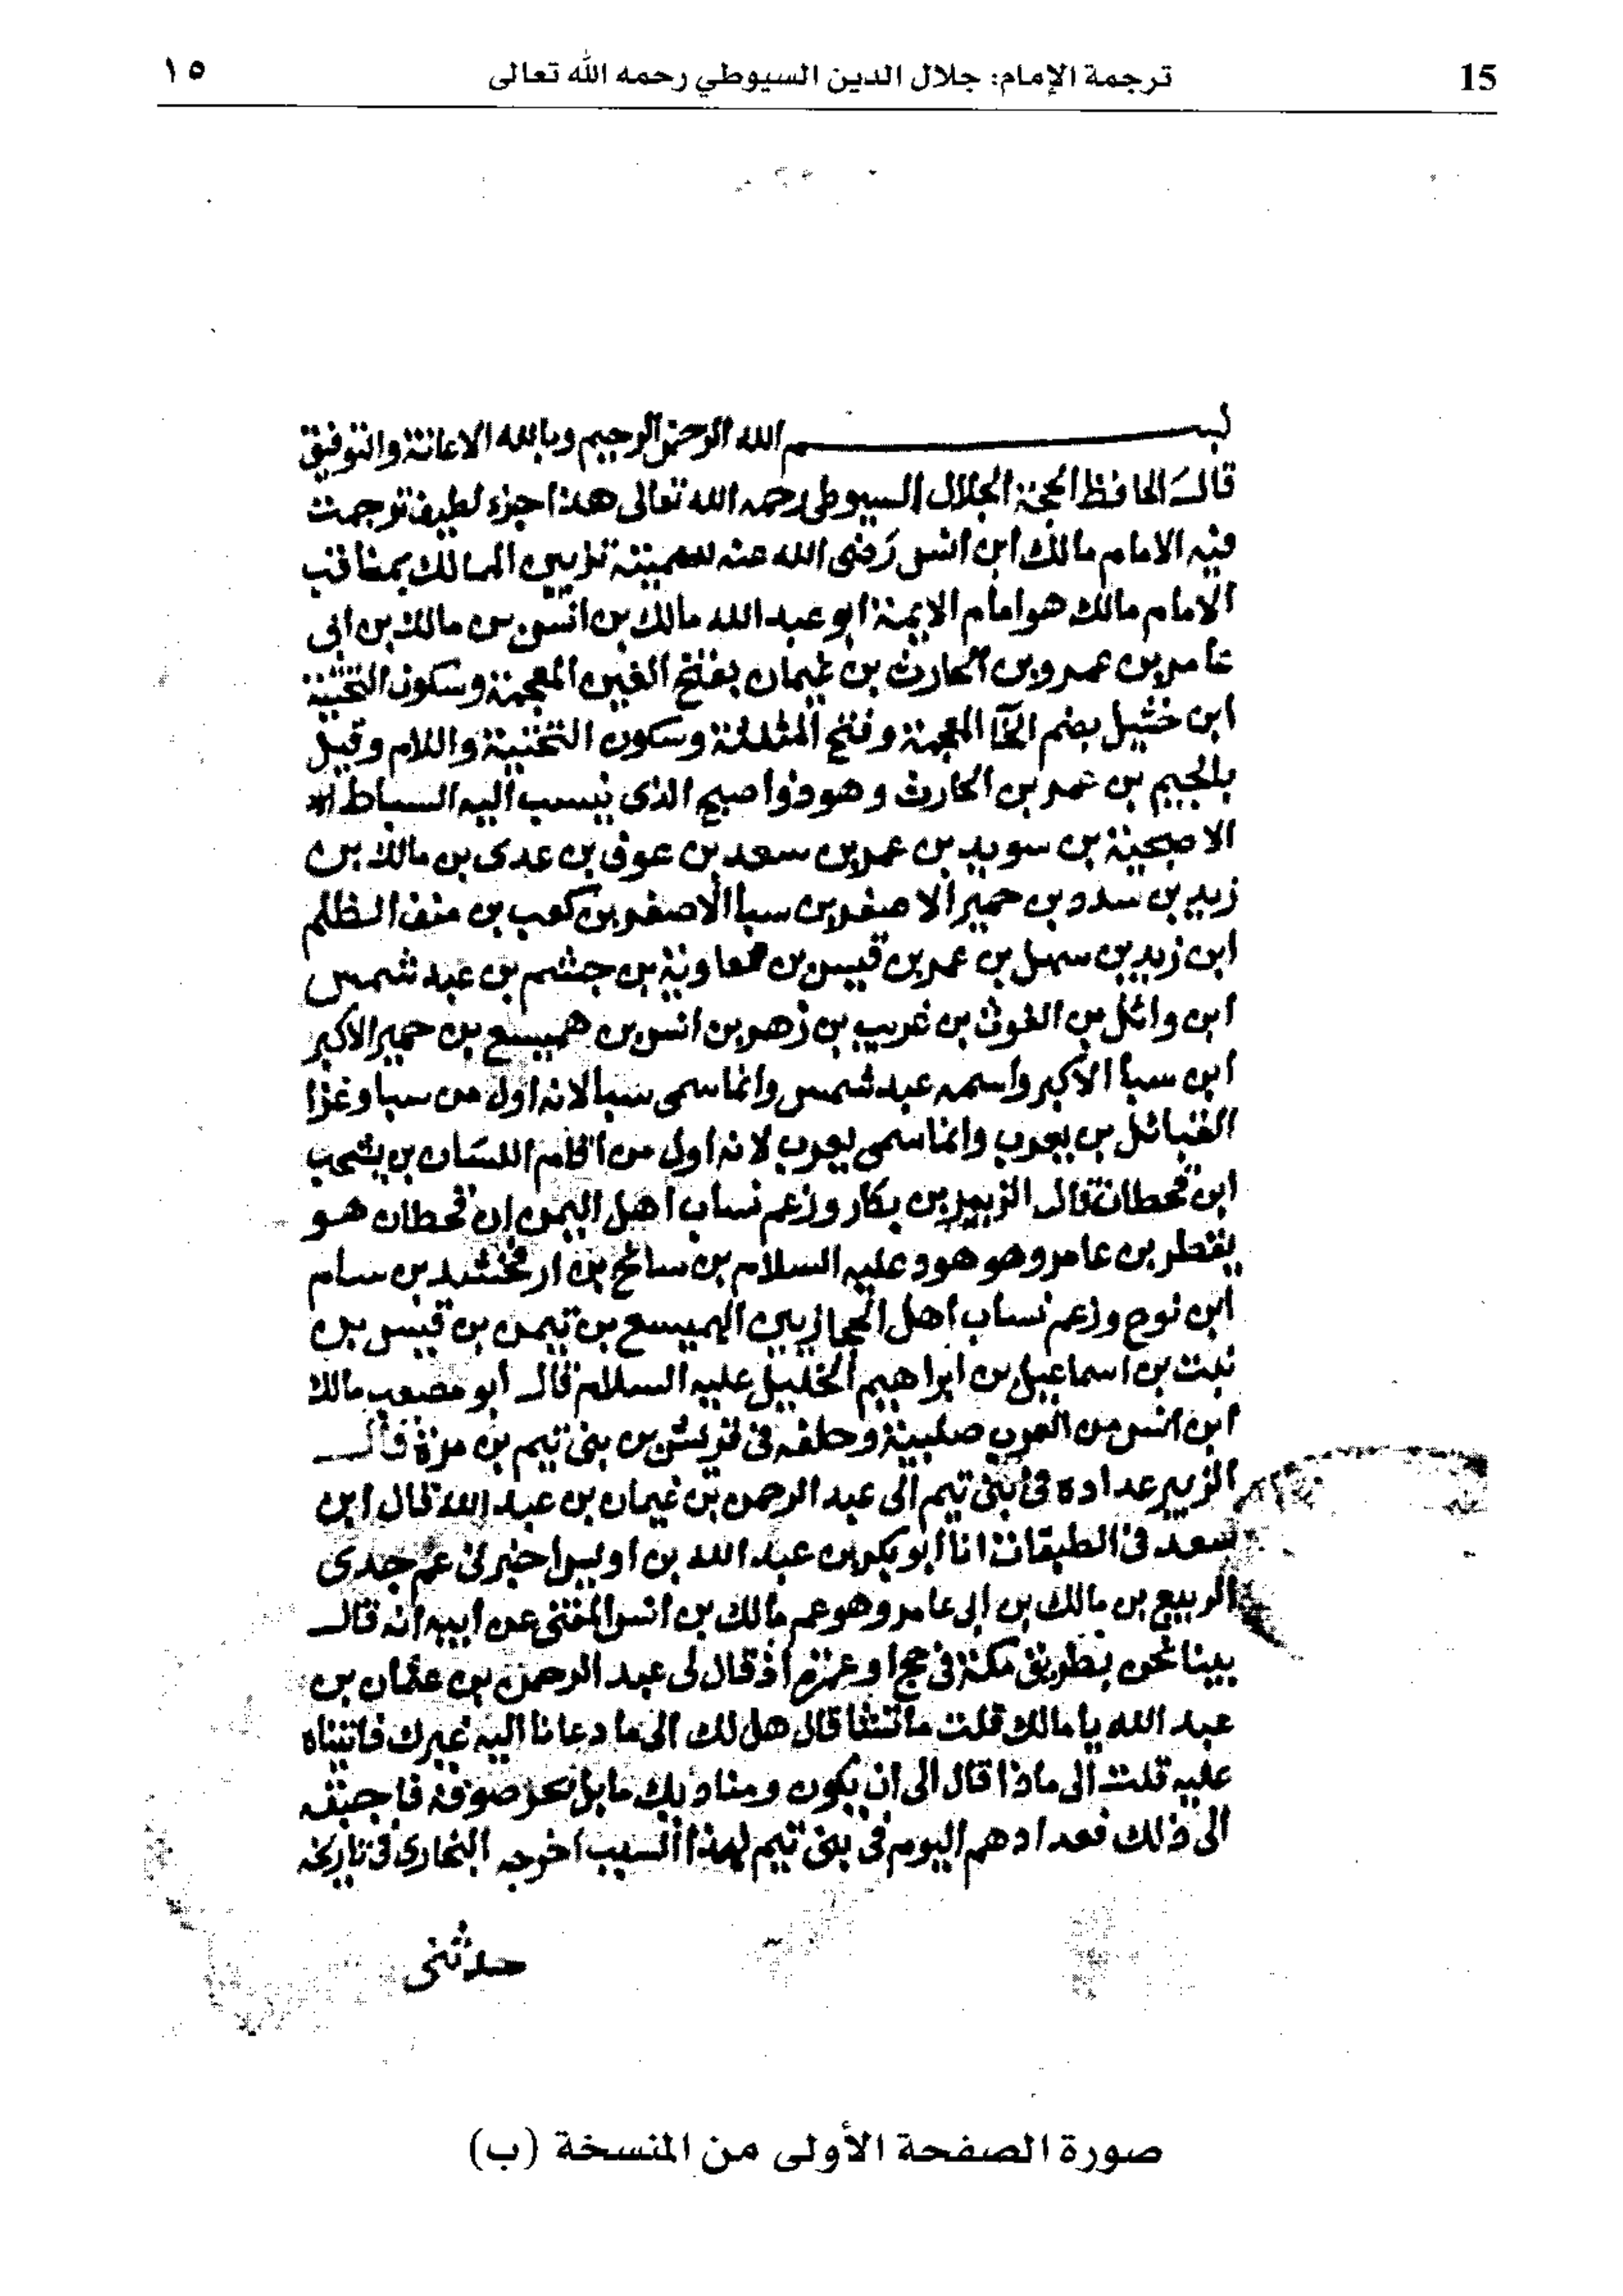 15 ترجمة الإمام: جلال الدين السيوطي رحمه الله تعالى ١٥
بسم الله الرحمن الرحيم وبالله الاعانة والتوفيق
قال الحافظ الحجة الجلال السيوطي رحمه الله تعالى هذا جزء لطيف ترجمت
فيه الامام مالك ابن انس رَضى الله عنه سميته تزيين الممالك بمناقب
الامام مالك هو امام الايمة ابو عبد الله مالك بن انس بن مالك بن ابى
عامر بن عمرو بن الحارث بن غيمان بفتح الغين المعجمة وسكون التحتية
ابن خثيل بضم الخا المعجمة وفتح المثلثة وسكون التحتية واللام وقيل
بالجيم بن عمر بن الحارث وهو ذوا صبح الذى ينسب اليه السباط
الاصبحية بن سويد بن عمر بن سعد بن عوف بن عدى بن مالك بن
زيد بن سدد بن حمير الاصغر بن سبا الاصغر بن كعب بن منف الظلم
ابن زيد بن سهل بن عمر بن قيس بن معاوية بن جشم بن عبد شمس
ابن وائل بن الغوث بن غريب بن زهر بن انس بن هميسع بن حمير الاكبر
ابن سبا الاكبر واسمه عبد شمس وانما سمى سبا لانه اول من سبا وغزا
القبائل بن يعرب وانما سمى يعرب لانه اول من اقام اللسان بن يشجب
ابن قحطان قال الزبير بن بكار وزعم نساب اهل اليمن ان قحطان هو
يقطر بن عامر وهو هود عليه السلام بن سالح بن ارفخشيد بن سام
ابن نوح وزعم نساب اهل الحجاز يبن الهميسع بن تيمن بن قيس بن
نبت بن اسماعيل بن ابراهيم الخليل عليه السلام قال ابو مصعب مالك
ابن انس من العرب صلبية وحلفه فى قريش بن بنى تيم بن مرة قال
الزبير عداده فى بنى تيم الى عبد الرحمن بن غيمان بن عبد الله قال ابن
سعد فى الطبقات انا ابو بكر بن عبد الله بن اويس اخبرنى عم جدى
الربيع بن مالك بن ابى عامر وهو عم مالك بن انس المفتى عن ابيه انه قال
بينا نحن بطريق مكة فى حج او عمرة اذ قال لى عبد الرحمن بن عثمان بن
عبد الله يا مالك قلت ما تشا قال هل لك الى ما دعانا اليه غيرك فاتيناه
عليه قلت الى ماذا قال الى ان يكون دمنا دمك ما بل بحر صوفة فاجبته
الى ذلك فعدادهم اليوم فى بنى تيم لهذا السبب اخرجه البخارى فى تاريخه
حدثنى
صورة الصفحة الأولى من النسخة (ب)